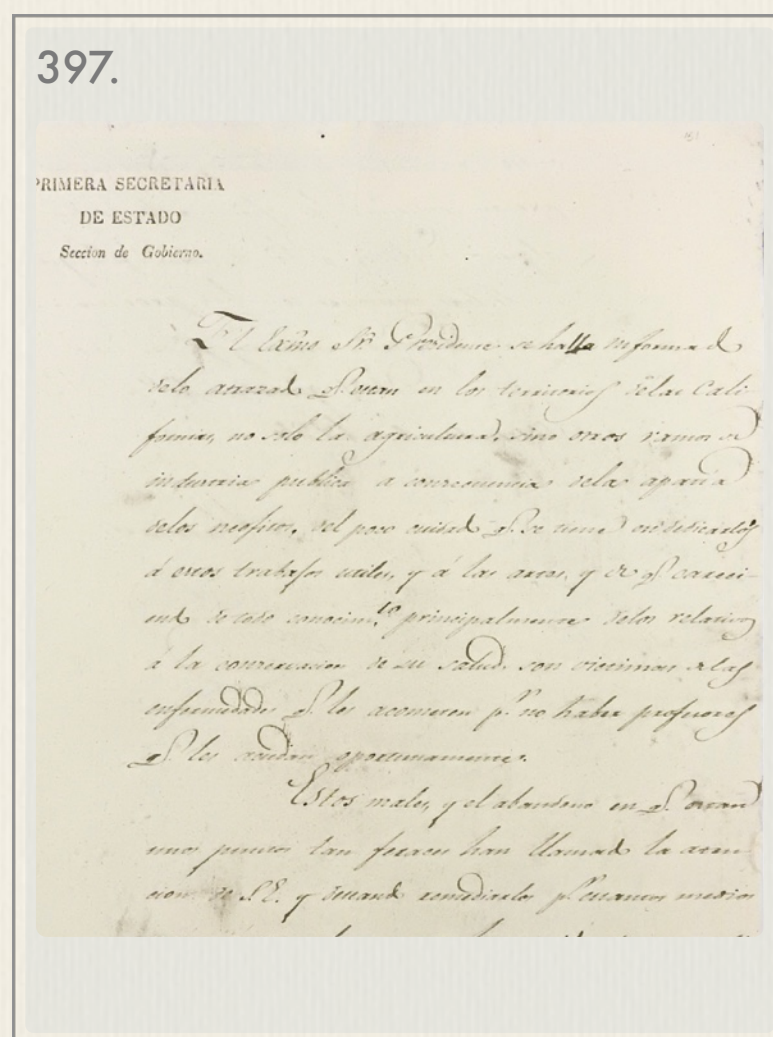 397.
PRIMERA SECRETARIA
DE ESTADO
Seccion de Gobierno.
El Exmo Sr. Presidente se halla informad
delo atrazad q. estan en los territorios delas Cali-
fornias, no solo la agricultura, sino otros ramos de
industria publica a consecuencia dela apatia
delos neofitos, del poco cuidad q. se tiene en dedicarlos
á otros trabajos utiles, y á las artes, y de q. careci-
end de todo conocim.to principalmente delos relativos
á la conservacion de su salud, son victimas delas
enfermedades q. les acometen p.r no haber profesores
q. les acudan oportunamente.
Estos males, y el abandono en q. estan
unos puntos tan feraces han llamad la aten-
cion de S.E. y deseand remediarlos p.r cuantos medios